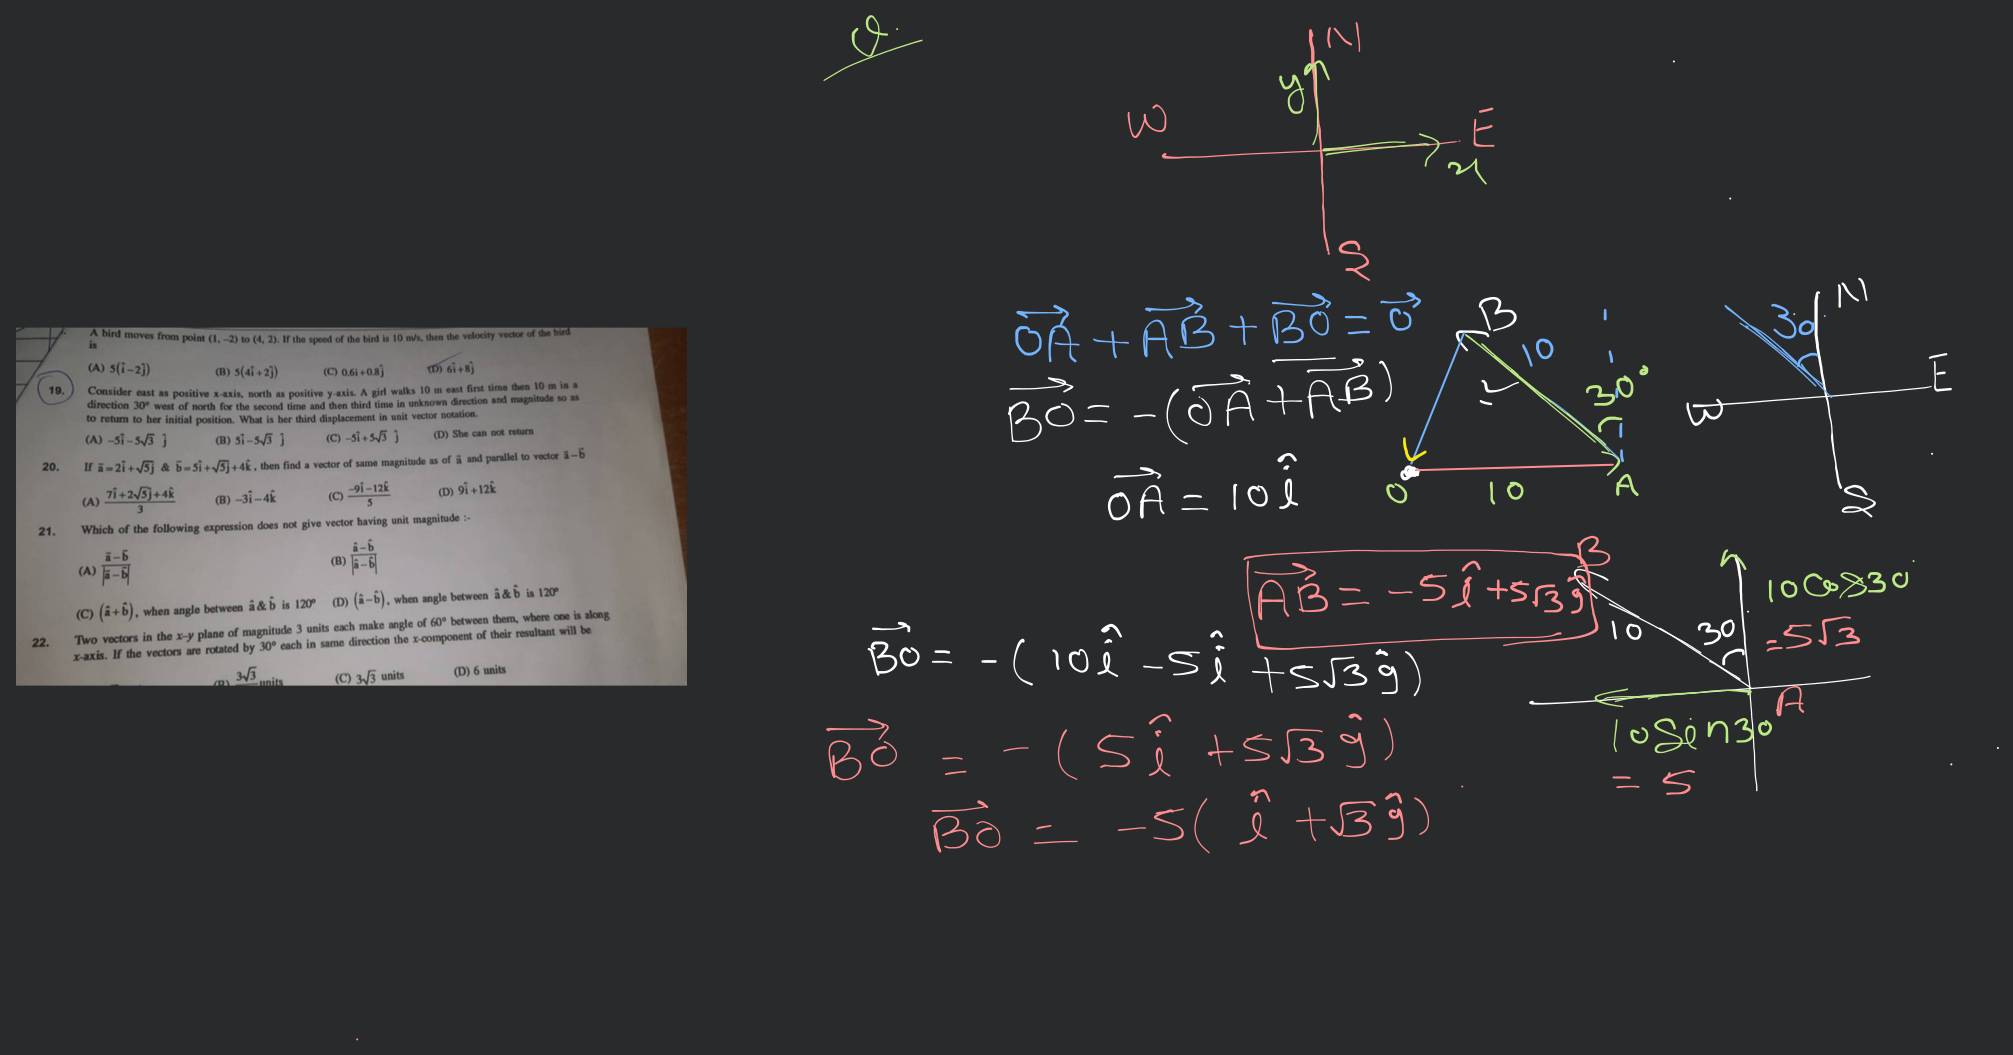 A bird moves from point (1, −2) to (4, 2). If the speed of the bird is 10 m/s, then the velocity vector of the bird
is
(A) 5(î−2ĵ) (B) 5(4î+2ĵ) (C) 0.6î+0.8ĵ (D) 6î+8ĵ
19. Consider east as positive x-axis, north as positive y-axis. A girl walks 10 m east first time then 10 m in a
direction 30° west of north for the second time and then third time in unknown direction and magnitude so as
to return to her initial position. What is her third displacement in unit vector notation.
(A) −5î−5√3 ĵ (B) 5î−5√3 ĵ (C) −5î+5√3 ĵ (D) She can not return
20. If a⃗=2î+√5ĵ & b⃗=5î+√5ĵ+4k̂, then find a vector of same magnitude as of a⃗ and parallel to vector a⃗−b⃗
(A) (7î+2√5ĵ+4k̂)/3 (B) −3î−4k̂ (C) (−9î−12k̂)/5 (D) 9î+12k̂
21. Which of the following expression does not give vector having unit magnitude :-
(A) (a⃗−b⃗)/|a⃗−b⃗| (B) (â−b̂)/|â−b̂|
(C) (â+b̂), when angle between â & b̂ is 120° (D) (â−b̂), when angle between â & b̂ is 120°
22. Two vectors in the x-y plane of magnitude 3 units each make angle of 60° between them, where one is along
x-axis. If the vectors are rotated by 30° each in same direction the x-component of their resultant will be
(B) 3√3 units (C) 3√3 units (D) 6 units
Q.
N
y
W
E
x
S
OA⃗ + AB⃗ + BO⃗ = 0⃗
BO⃗ = −(OA⃗ + AB⃗)
OA⃗ = 10î
B
10
30°
O
10
A
N
30
E
W
S
AB⃗ = −5î + 5√3ĵ
B
10
30
10Cos30
= 5√3
A
10Sin30
= 5
BO⃗ = −(10î − 5î + 5√3ĵ)
BO⃗ = −(5î + 5√3ĵ)
BO⃗ = −5(î + √3ĵ)